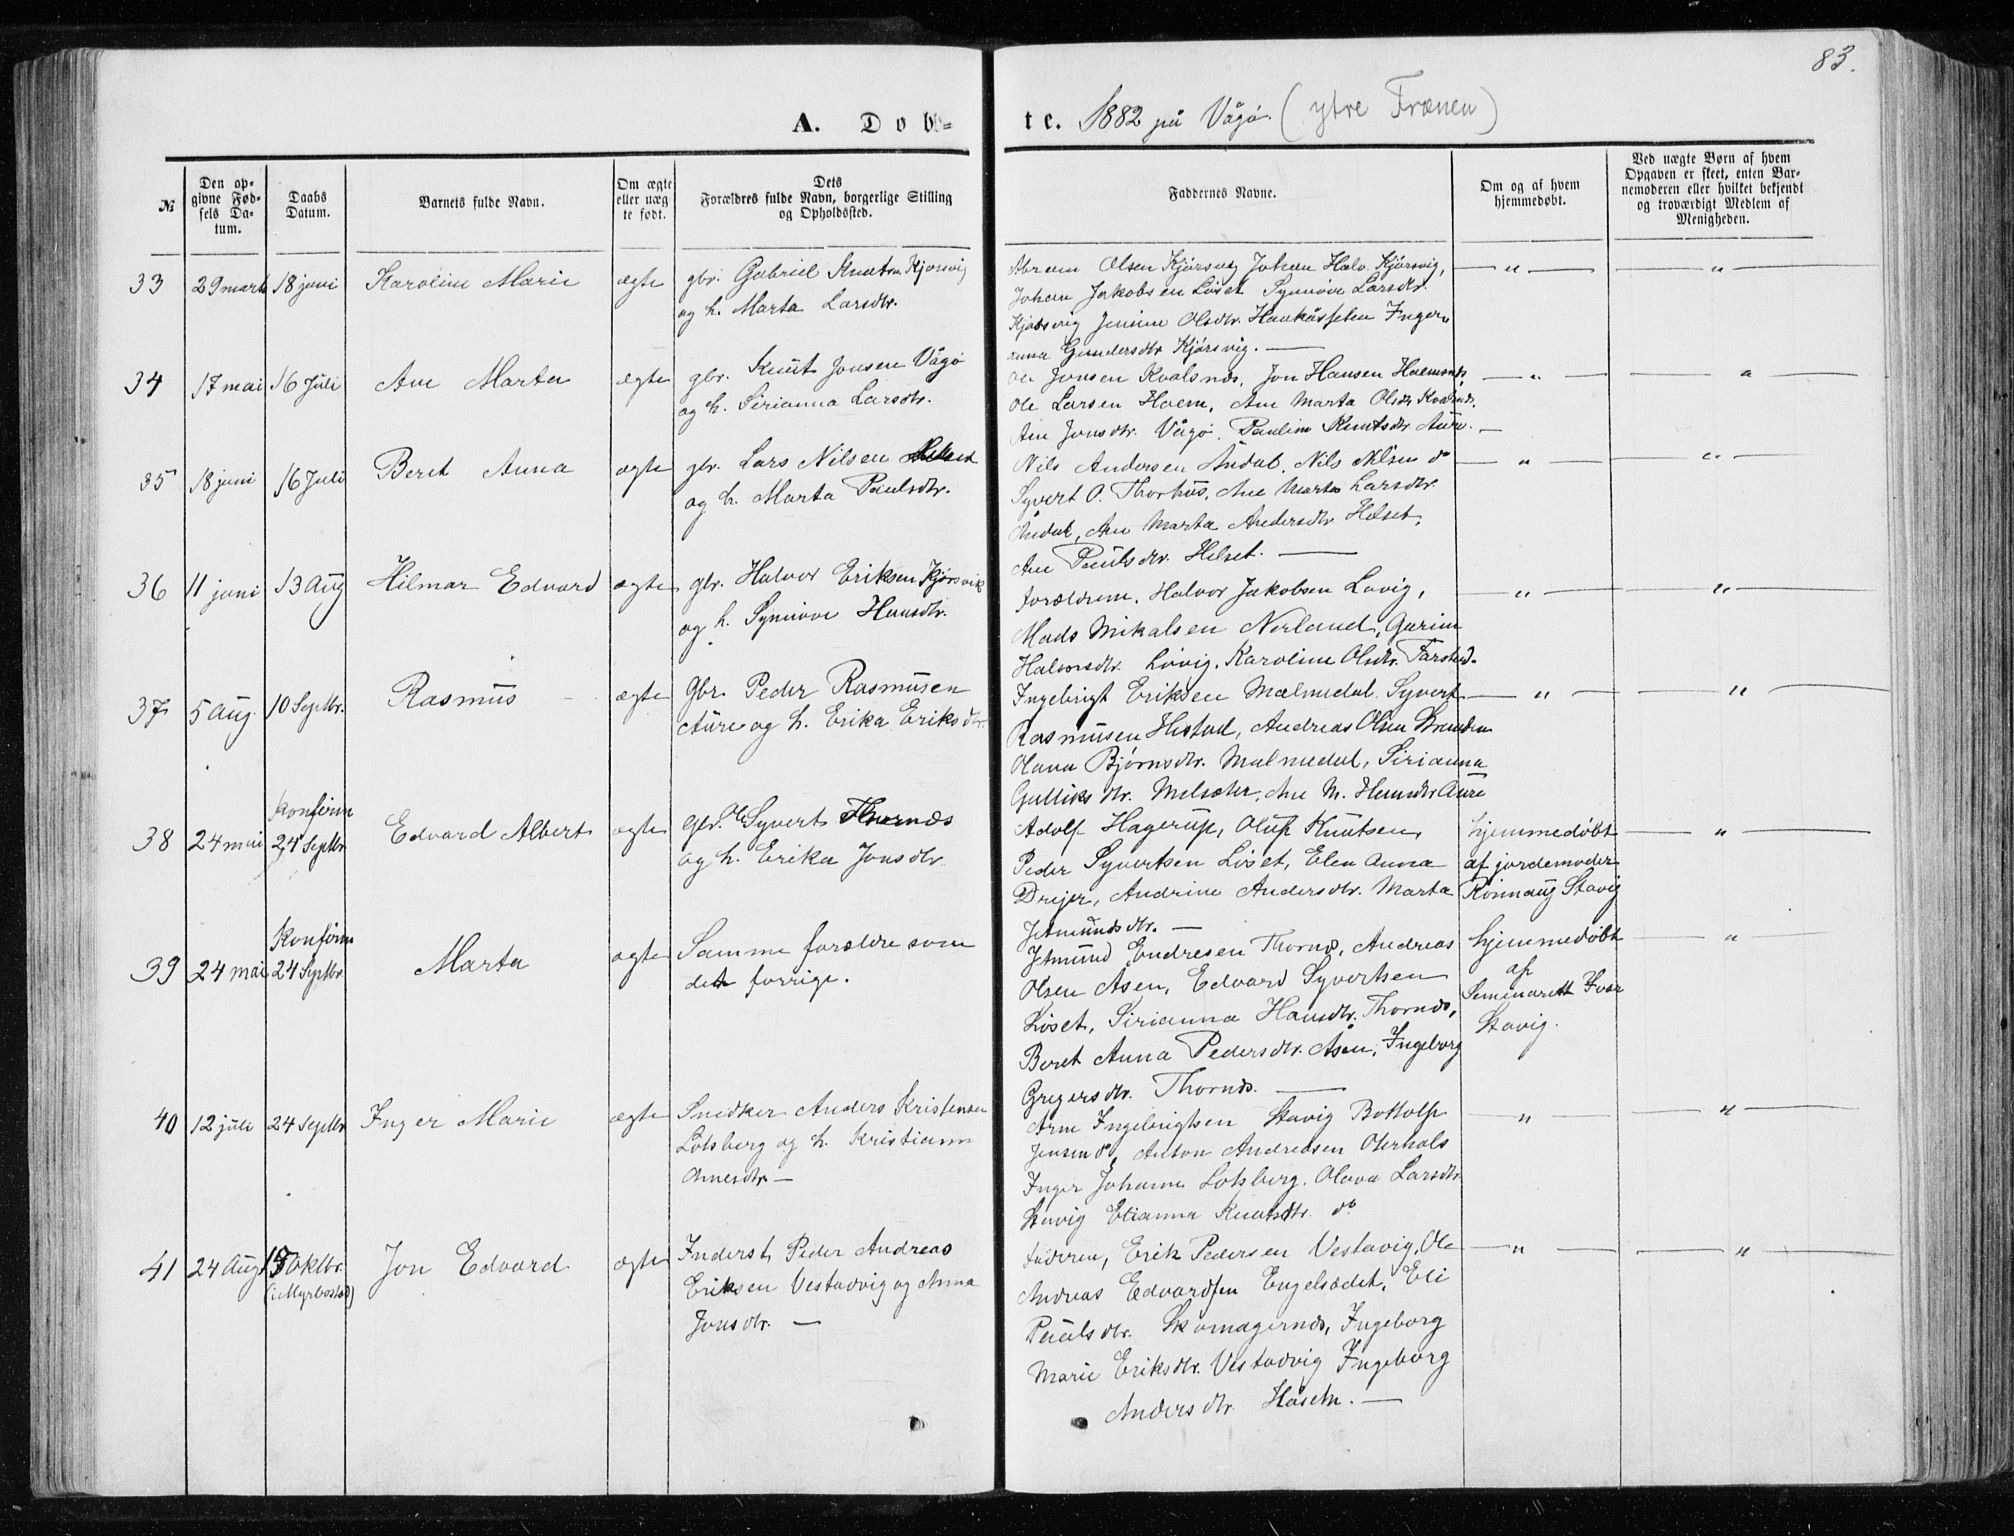 83.
A. Døb=
te. 1882 på Vågø. (ytre Frænen)
№
Den op-
givne Fød-
sels Da-
tum.
Daabs
Datum.
Barnets fulde Navn.
Om ægte
eller uæg
te født.
Dets
Forældres fulde Navn, borgerlige Stilling
og Opholdssted.
Faddernes Navne.
Om og af hvem
hjemmedøbt.
Ved uægte Børn af hvem
Opgaven er skeet, enten Bar-
nemoderen eller hvilket bekjendt
og troværdigt Medlem af
Menigheden.
33 29 marts 18 juni Karoline Marie ægte gbr. Gabriel Knutsen Kjørsvig
og h. Marta Larsdtr.
Abram Olsen Kjørsvig Johan Halv. Kjørsvig, — " — "
Johan Jakobsen Løset Synnøve Larsdtr.
Kjørsvig Jensine Olsdtr. Haukåssælen Inger
anna Gundersdtr Kjørsvig. —
34 17 mai 16 Juli Ane Marta ægte gbr. Knut Jonsen Vågø
og h. Sirianna Larsdtr.
Ole Jonsen Kvalsnæs, Jon Hansen Haemsnæs, — " — "
Ole Larsen Haem, Ane Marta Olsdtr Kvalsnæs.
Ane Jonsdtr. Vågø. Pauline Knutsdtr Aure. —
35 18 juni 16 Juli Beret Anna ægte gbr. Lars Nilsen Helset
og h. Marta Paulsdtr.
Nils Andersen Åndal. Nils Nilsen do — " — "
Syvert O. Thorhus, Ane Marta Larsdtr.
Åndal, Ane Marta Andersdtr Helset,
Ane Paulsdtr. Helset. —
36 11 juni 13 Aug Hilmar Edvard ægte gbr. Halvor Eriksen Kjørsvik
og h. Synnøve Hansdtr.
Forældrene. Halvor Jakobsen Løvig, — " — "
Mads Mikalsen Nerland, Gurine
Halvorsdtr. Løvig. Karoline Olsdtr. Farstad.
37 5 Aug. 10 Septbr. Rasmus ægte Gbr. Peder Rasmusen
Aure og h. Erika Eriksdtr.
Ingebrigt Eriksen Malmedal. Syvert — " — "
Rasmusen Hustad, Andreas Olsen
Olava Bjørnsdtr. Malmedal, Sirianna
Gulliksdtr. Melsæter, Ane M. Hansdtr Aure
38 24 mai Konfirm 24 Septbr. Edvard Albert ægte Gbr. Ole Syverts Thornæs
og h. Erika Jonsdtr.
Adolf Hagerup, Oluf Knutsen, hjemmedøbt — "
Peder Syvertsen Løset, Elen Anna af jordemoder
Drejer, Andrine Andersdtr. Marta Rønnaug Stavig
Jetmundsdtr. —
39 24 mai Konfirm 24 Septbr. Marta ægte Samme forældre som
det forrige.
Jetmund Endresen Thornæs, Andreas hjemmedøbt — "
Olsen Åsen, Edvard Syvertsen af
Løset, Sirianna Hansdtr. Thornæs, Seminarist Ivar
Beret Anna Pedersdtr. Åsen, Ingeborg Stavig.
Gregersdtr. Thornæs. —
40 12 juli 24 Septbr Inger Marie ægte Snedker Anders Kristensen
Lotsberg og h. Kristianna
Arnesdtr —
Arne Ingebrigtsen Stavig Bottolf — " — "
Jensen do, Anton Andreasen Oterhals
Inger Johanne Lotsberg. Olava Larsdtr
Stavig Elianna Knutsdtr. do
41 24 Aug 15 Oktbr. (i Myrbostad) Jon Edvard ægte Inderst Peder Andreas
Eriksen Vestadvig og Anna
Jonsdtr. —
Faderen, Erik Pedersen Vestavig, Ole — " — "
Andreas Edvardsen Engelsædet, Eli
Paulsdtr. Skomagernæs, Ingeborg
Marie Eriksdtr. Vestadvig Ingeborg
Andersdtr Håseth. —